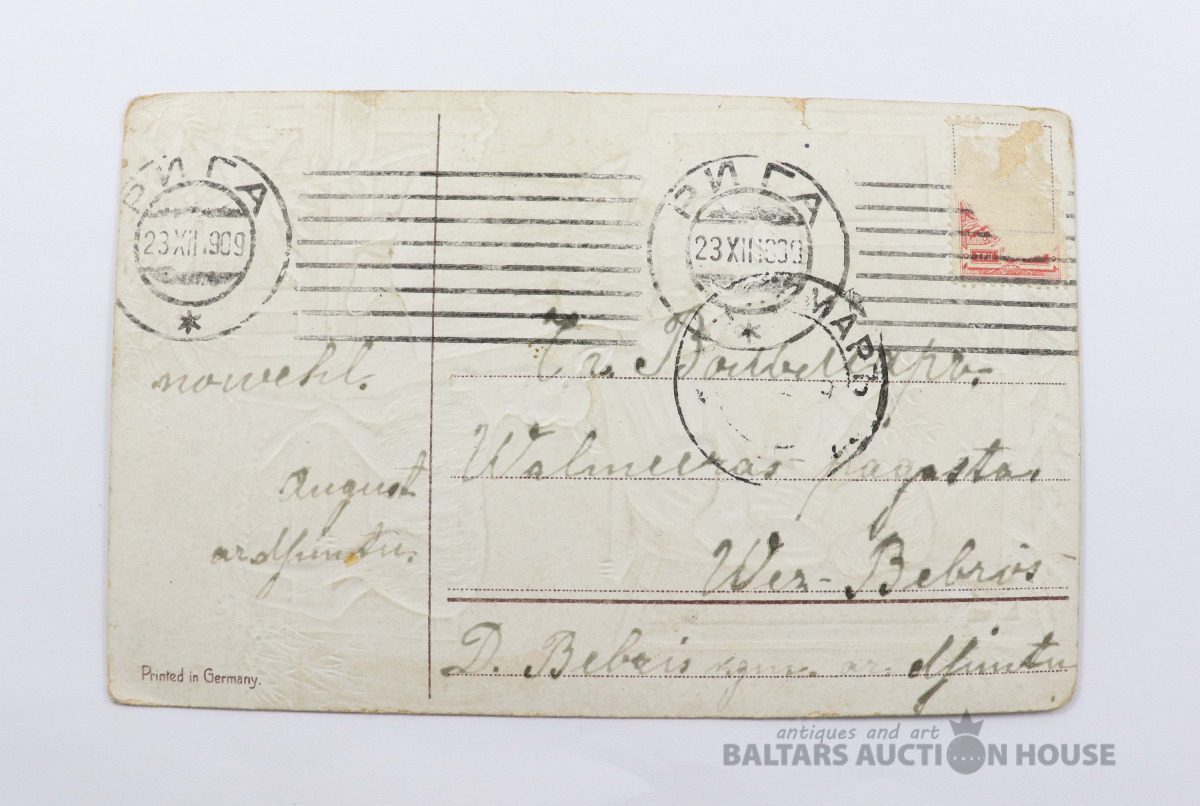 РИГА
23 XII 1909
РИГА
23 XII 1909
МАРЪ
г. Вольмаръ
nowehl.
Walmeeras pagasta
August
ar dsimtu.
Wez-Bebros
D. Bebris kgm. ar dsimtu
Printed in Germany.
antiques and art
BALTARS AUCTION HOUSE